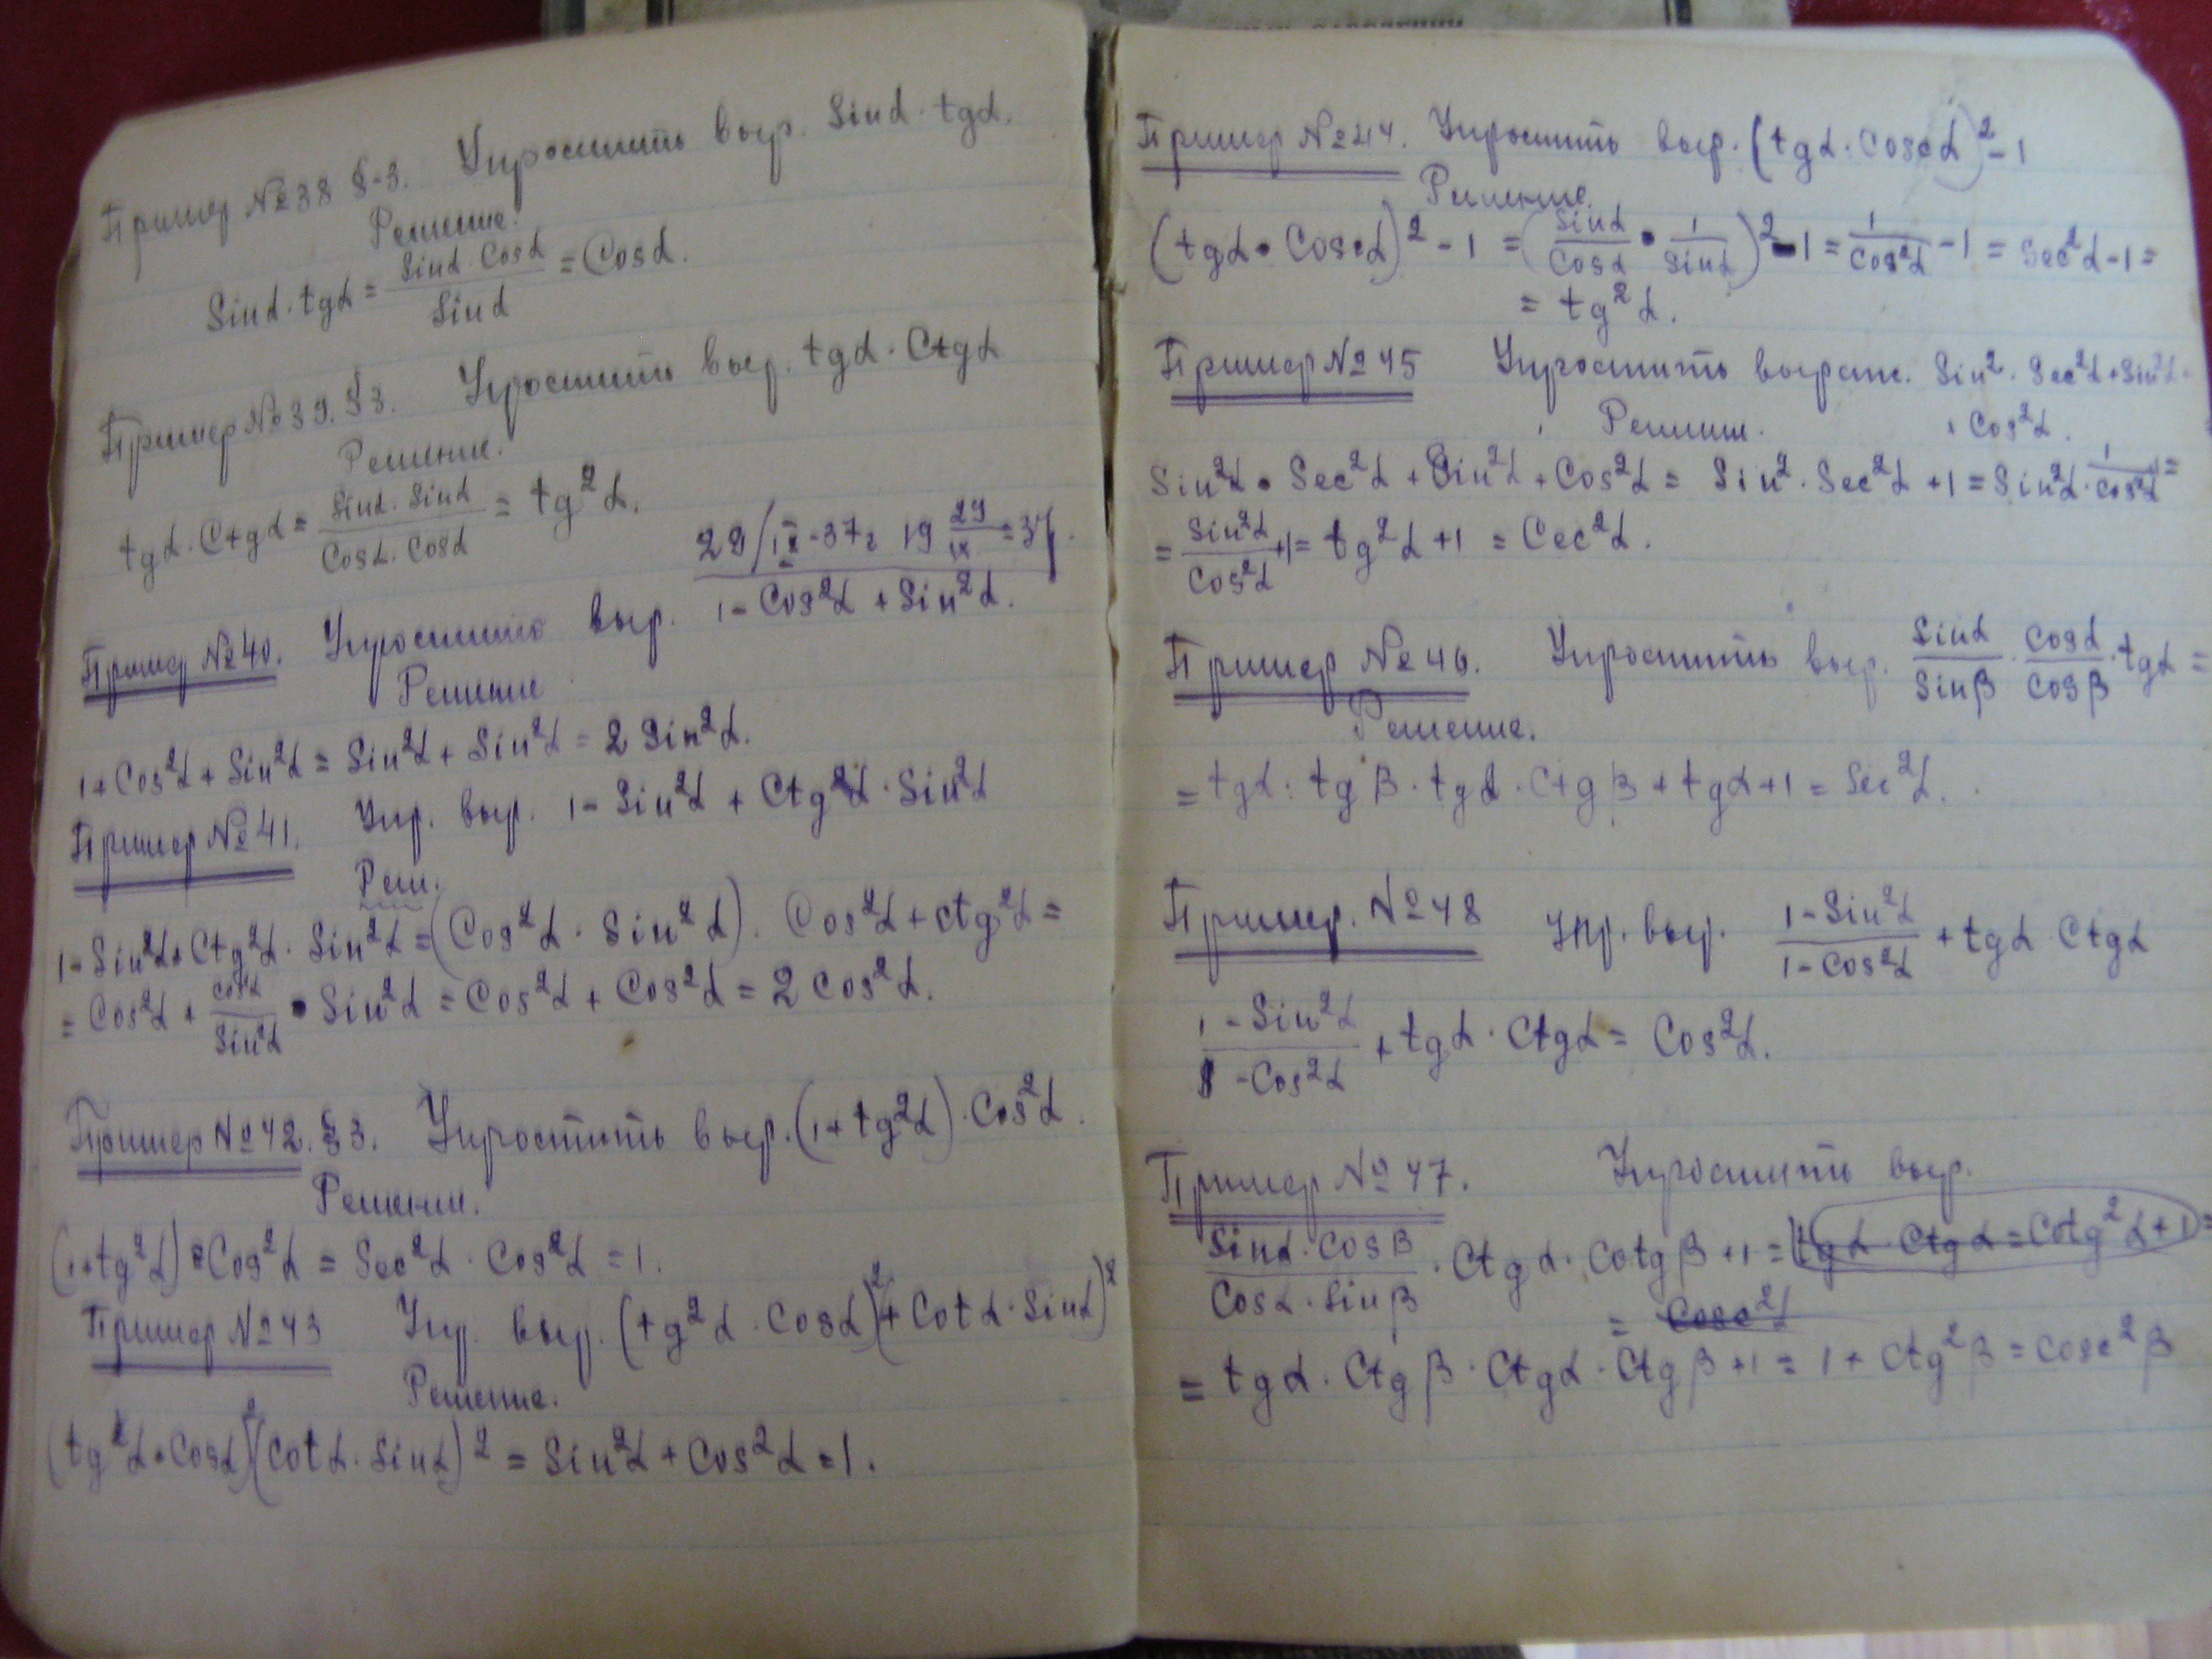 Пример №38 §-3. Упростить выр. Sinα·tgα.
Решение.
Sinα·tgα = Sinα·Cosα / Sinα = Cosα.
Пример №39. §3. Упростить выр. tgα·Ctgα
Решение.
tgα·Ctgα = Sinα·Sinα / Cosα·Cosα = tg²α.
29/IX-37г 19 29/IX = 37
Пример №40. Упростить выр. 1-Cos²α+Sin²α.
Решение
1+Cos²α+Sin²α = Sin²α+Sin²α = 2Sin²α.
Пример №41. Упр. выр. 1-Sin²α+Ctg²α·Sin²α
Реш.
1-Sin²α+Ctg²α·Sin²α = (Cos²α·Sin²α). Cos²α+ctg²α =
= Cos²α + Cos²α / Sin²α · Sin²α = Cos²α + Cos²α = 2Cos²α.
Пример №42. §3. Упростить выр. (1+tg²α)·Cos²α.
Решении.
(1+tg²α)·Cos²α = Sec²α·Cos²α = 1.
Пример №43 Упр. выр. (tg²α·Cosα)²+Cotα·Sinα)²
Решение.
(tg²α·Cosα)²(Cotα·Sinα)² = Sin²α+Cos²α = 1.
Пример №44. Упростить выр. (tgα·Cosecα)²-1
Решение.
(tgα·Cosecα)²-1 = (Sinα / Cosα · 1 / Sinα)²-1 = 1 / Cos²α -1 = Sec²α-1 =
= tg²α.
Пример №45 Упростить выраж. Sin²·Sec²α+Sin²α+
Решен.
+Cos²α.
Sin²α·Sec²α+Sin²α+Cos²α = Sin²·Sec²α+1 = Sin²α·1 / Cos²α +1 =
= Sin²α / Cos²α +1 = tg²α+1 = Cec²α.
Пример №46. Упростить выр. Sinα / Sinβ · Cosα / Cosβ · tgα =
Решение.
= tgα: tgβ·tgα·Ctgβ+tgα+1 = Sec²α.
Пример. №48 Упр. выр. 1-Sin²α / 1-Cos²α + tgα Ctgα
1-Sin²α / 1-Cos²α + tgα·Ctgα = Cos²α.
Пример №47. Упростить выр.
Sinα·Cosβ / Cosα·Sinβ · Ctgα·Cotgβ+1 = tgα·Ctgα = Cotg²α+1 =
= Cosec²α
= tgα·Ctgβ·Ctgα·Ctgβ+1 = 1+Ctg²β = cosec²β